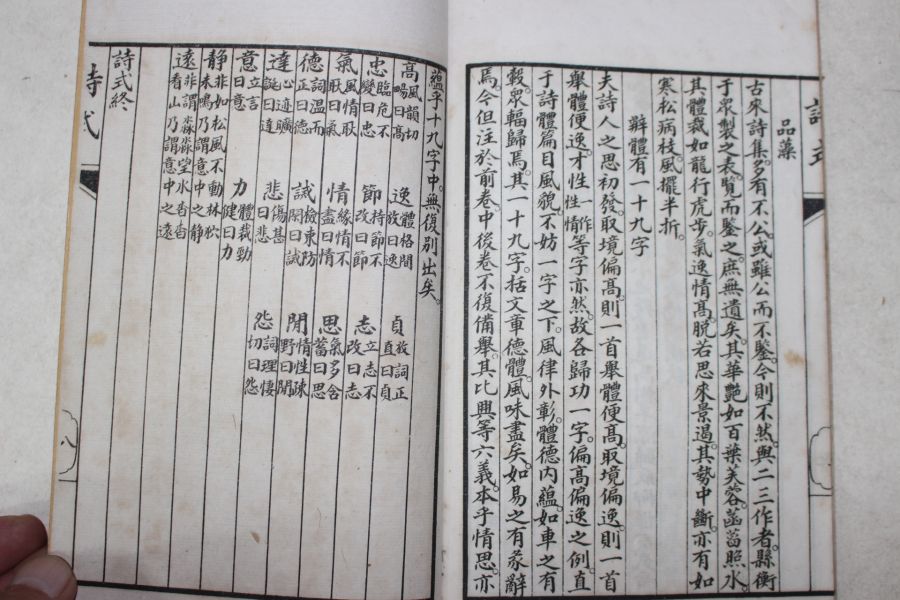 品藻
古來詩集。多有不公。或雖公而不鑒。今則不然。與二三作者。縣衡
于衆製之表。覽而鑒之。庶無遺矣。其華艷如百葉芙蓉。菡萏照水。
其體裁如龍行虎步。氣逸情高。脫若思來景遏。其勢中斷。亦有如
寒松病枝。風擺半折。
辯體有一十九字
夫詩人之思初發。取境偏高。則一首舉體便高。取境偏逸。則一首
舉體便逸。才性情性作等字亦然。故各歸功一字。偏高偏逸之例。直
于詩體篇目風貌。不妨一字之下。風律外彰。體德內蘊。如車之有
轂。衆輻歸焉。其一十九字。括文章德體。風味盡矣。如易之有彖辭
焉。今但注於前卷中。後卷不復備舉。其比興等六義。本乎情思。亦
蘊乎十九字中。無復別出矣。
高風韻切暢曰高 逸體格閒放曰逸 貞放詞正直曰貞
忠臨危不變曰忠 節持節不改曰節 志立志不改曰志
氣風情耿耿曰氣 情緣情不盡曰情 思氣多含蓄曰思
德詞溫而正曰德 誡檢束防閑曰誡 閒情性疎野曰閒
達心迹曠誕曰達 悲傷甚曰悲 怨詞理悽切曰怨
意立言曰意 力體裁勁健曰力
靜非如松風不動林狖未鳴乃謂意中之靜
遠非謂淼淼望水杳杳看山乃謂意中之遠
詩式終
詩式
八